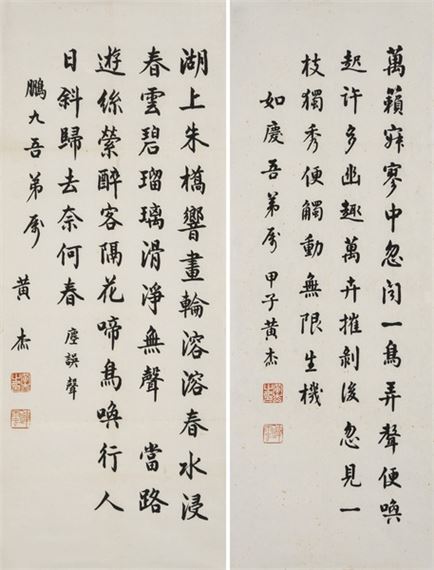 萬籟寂寥中忽聞一鳥弄聲便喚
起許多幽趣萬卉摧剝後忽見一
枝獨秀便觸動無限生機
如慶吾弟屬 甲子黃杰
湖上朱橋響畫輪溶溶春水浸
春雲碧瑠璃滑淨無聲 當路
遊絲縈醉客隔花啼鳥喚行人
日斜歸去奈何春 塵誤聲
鵬九吾弟屬
黃杰